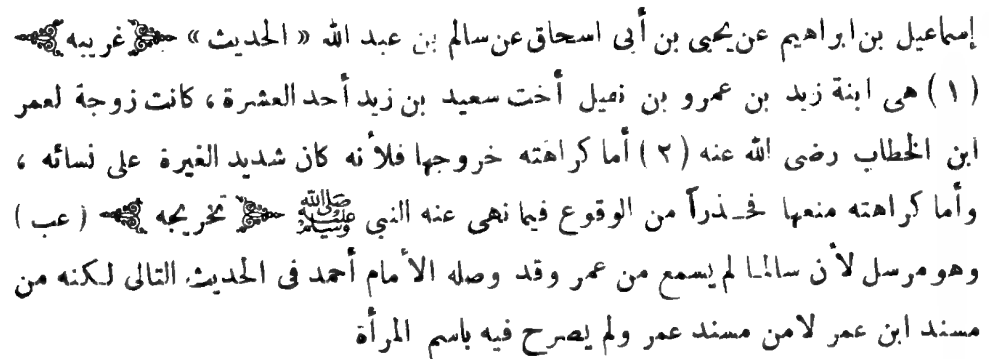 إسماعيل بن ابراهيم عن يحيى بن أبى اسحاق عن سالم بن عبد الله « الحديث » ﴿ غريبه ﴾
( ١ ) هى ابنة زيد بن عمرو بن نفيل أخت سعيد بن زيد أحد العشرة ، كانت زوجة لعمر
ابن الخطاب رضى الله عنه ( ٢ ) أما كراهته خروجها فلأنه كان شديد الغيرة على نسائه ،
وأما كراهته منعها فحذراً من الوقوع فيما نهى عنه النبي ﷺ ﴿ تخريجه ﴾ ( عب )
وهو مرسل لأن سالما لم يسمع من عمر وقد وصله الأمام أحمد فى الحديث التالى لكنه من
مسند ابن عمر لامن مسند عمر ولم يصرح فيه باسم المرأة